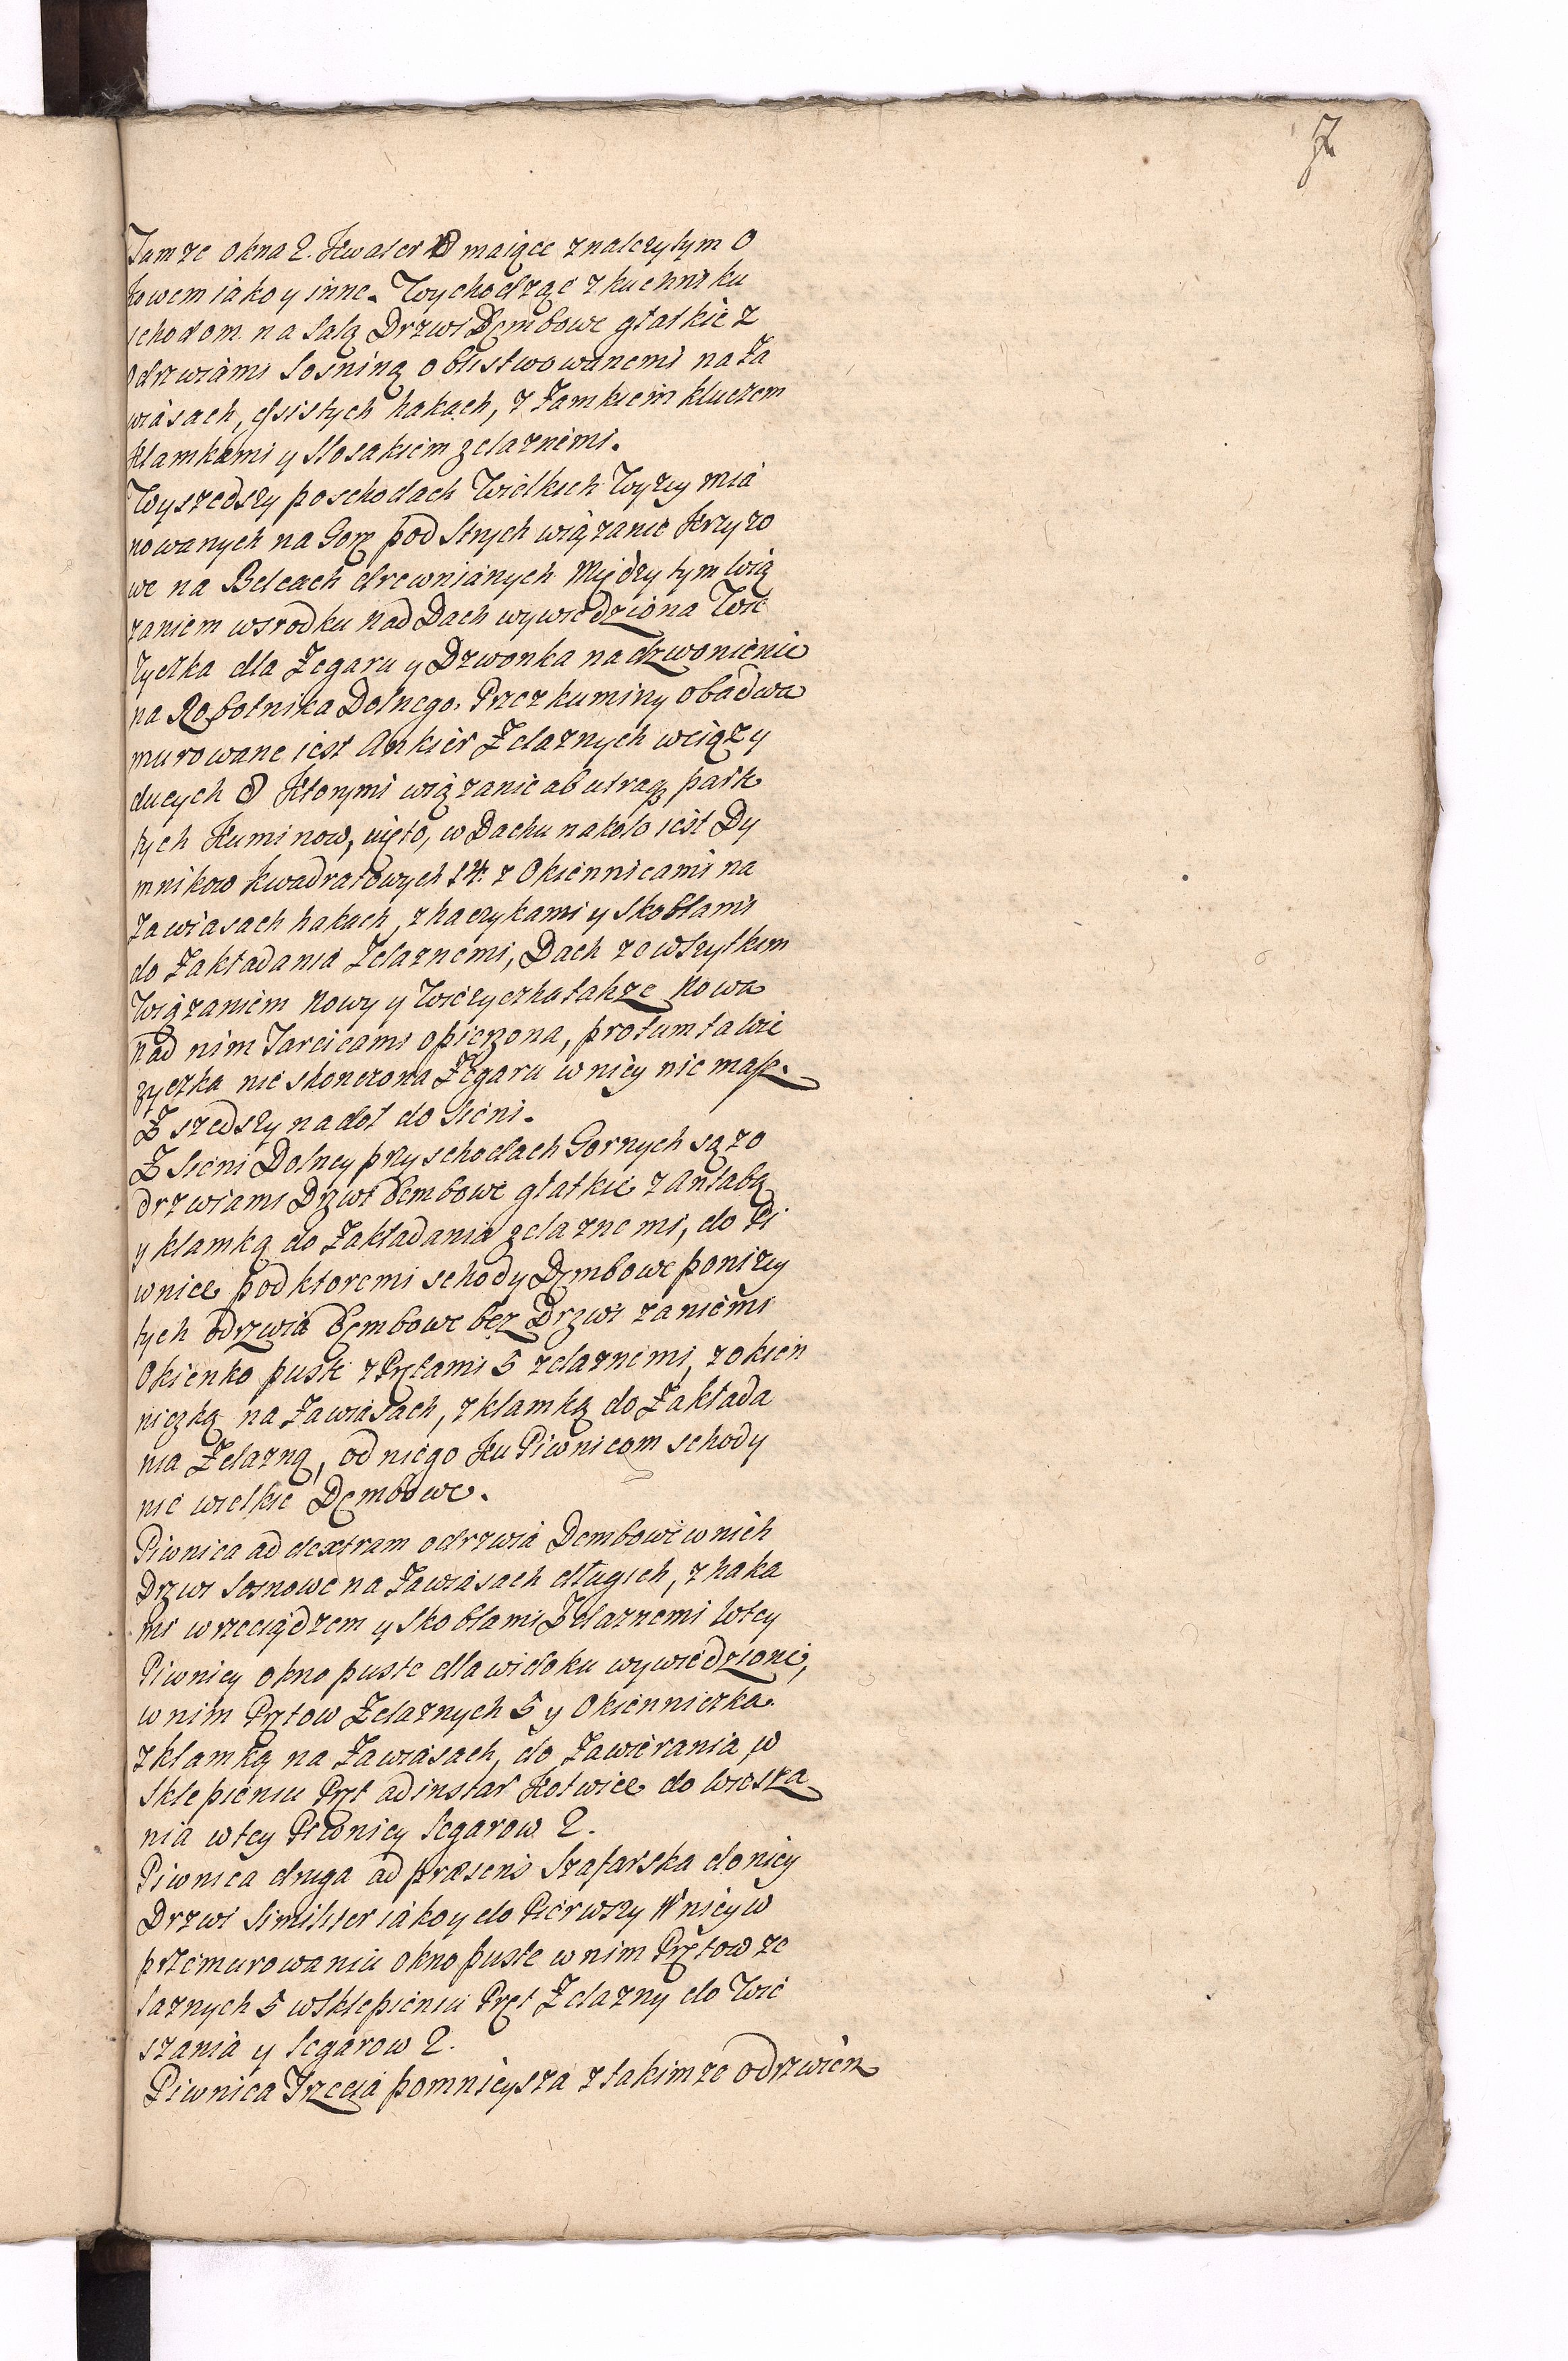 7
Tamże okna 2. Kwater 8 maiące znalezytym O
kowem iako y inne. Wychodząc z kuchni ku
schodom na Salą Drzwi Dębowe głatkie z
Odrzwiami Sosniną oblistwowanemi na Za
wiasach, essistych hakach, z Zamkiem kluczem
klamkami y Flosakiem zelaznemi.
Wyszedszy po schodach Wielkich Wyzy mia
nowanych na Gorę pod Strych wiązanie Krzyzo
we na Belcach drewnianych Między tym Wią
zaniem wsrodku nad Dach wywiedziona Wie
życzka dla Zegaru y Dzwonka na dzwonienie
na Robotnika Dolnego. Przez kuminy obadwa
murowane iest Ankier Zelaznych wciąz y
ducych 8 Ktorymi wiązanie ab utraq parte
tych Kuminow, uięto, w Dachu nakoło iest Dy
mnikow kwadratowych 14. z Okiennicami na
Zawiasach hakach, z haczykami y Skoblami
do Zakładania Zelaznemi, Dach ze wszytkim
Wiązaniem Nowy y Wieżyczka także Nowa
nad nim Tarcicami opierzona, pro tum ta Wie
zyczka nie skonczona Zegaru w niey nie masz.
Z szedszy na doł do Sieni.
Z Sieni Dolney przy schodach Gornych są z o
drzwiami Drzwi Dembowe głatkie z Antabą
y klamką do Zakładania zelaznemi, do Pi
wnice pod ktoremi schody Dembowe ponizey
tych odrzwia Dembowe bez Drzwi za niemi
Okienko puste z Prętami 5 zelaznemi, z okien
niczką na Zawiasach, z klamką do Zakłada
nia Zelazną, od niego Ku Piwnicom schody
nie wielkie Dembowe.
Piwnica ad dextram odrzwia Dembowe w nich
Drzwi Sosnowe na Zawiasach długich, z haka
mi wrzeciądzem y Skoblami Zelaznemi W tey
Piwnicy okno puste dla widoku wywiedzione,
w nim Prętow Zelaznych 5 y Okienniczka
z klamką na Zawiasach, do Zawierania w
Sklepieniu Pręt ad instar Kotwice do Wiesza
nia w tey Piwnicy Segarow 2.
Piwnica druga ad præsens Szafarska do niey
Drzwi Similiter iako y do Pierwszy W niey w
przemurowaniu okno puste w nim Prętow ze
laznych 5 w Sklepieniu Pręt Zelazny do Wie
szania y Segarow 2.
Piwnica Trzecia pomnieysza z takimze odrzwiem